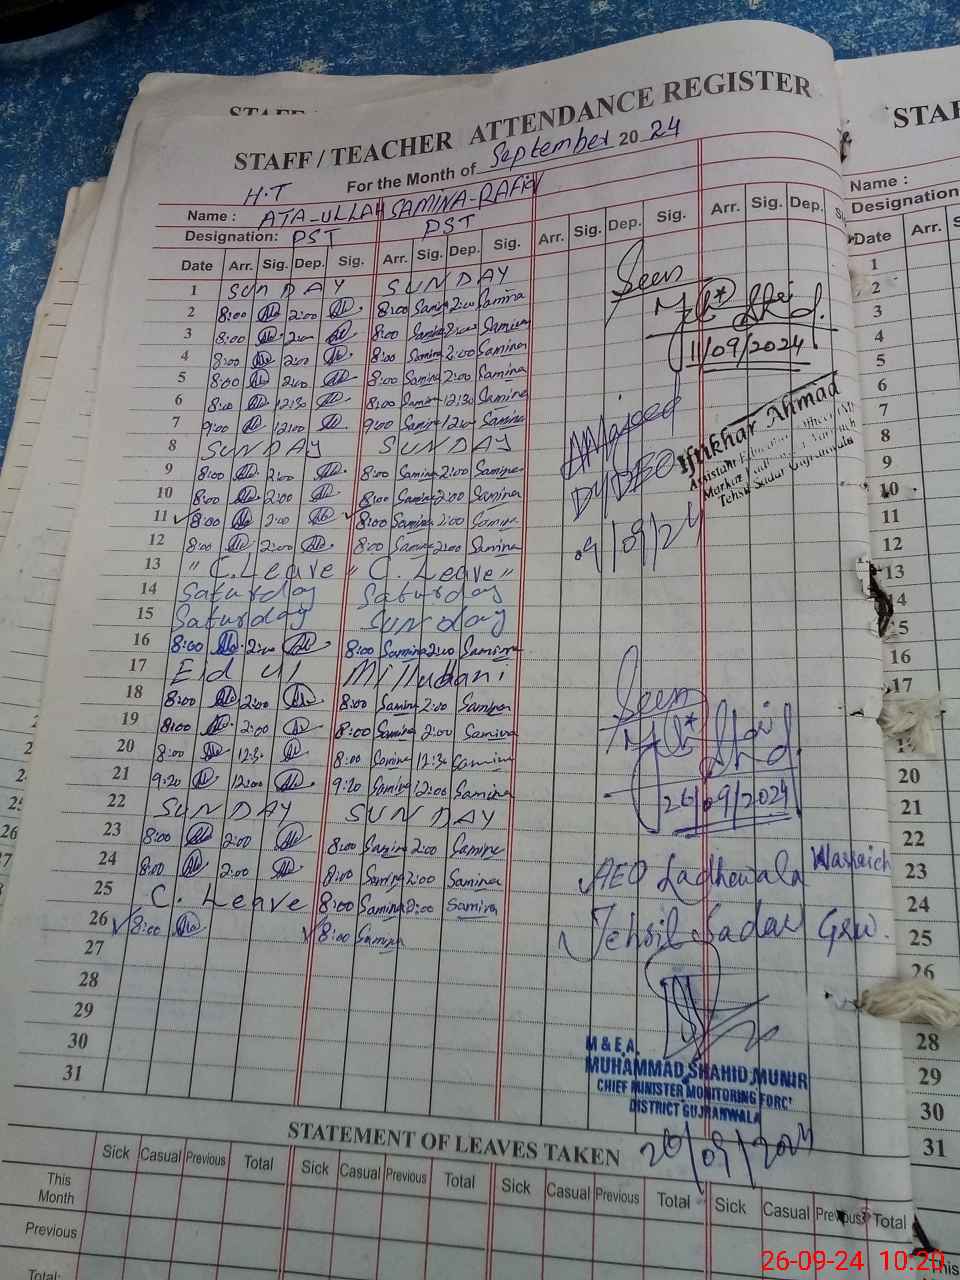 STAFF / TEACHER ATTENDANCE REGISTER
For the Month of September 20 24
H.T
Name : ATA-ULLAH SAMINA-RAFIQ
Designation: PST PST
Date Arr. Sig. Dep. Sig. Arr. Sig. Dep. Sig. Arr. Sig. Dep. Sig. Arr. Sig. Dep.
1 SUNDAY SUNDAY
2 8:00 2:00 8:00 Samina 2:00 Samina
3 8:00 2:00 8:00 Samina 2:00 Samina
4 8:00 2:00 8:00 Samina 2:00 Samina
5 8:00 2:00 8:00 Samina 2:00 Samina
6 8:00 12:30 8:00 Samina 12:30 Samina
7 9:00 12:00 9:00 Samina 12:00 Samina
8 SUNDAY SUNDAY
9 8:00 2:00 8:00 Samina 2:00 Samina
10 8:00 2:00 8:00 Samina 2:00 Samina
11 8:00 2:00 8:00 Samina 2:00 Samina
12 8:00 2:00 8:00 Samina 2:00 Samina
13 " C. Leave " C. Leave "
14 Saturday Saturday
15 Saturday SUNday
16 8:00 2:00 8:00 Samina 2:00 Samina
17 Eid Ul
18 8:00 2:00 8:00 Samina 2:00 Samina
19 8:00 2:00 8:00 Samina 2:00 Samina
20 8:00 12:30 8:00 Samina 12:30 Samina
21 9:20 12:00 9:20 Samina 12:00 Samina
22 SUNDAY SUNDAY
23 8:00 2:00 8:00 Samina 2:00 Samina
24 8:00 2:00 8:00 Samina 2:00 Samina
25 C. Leave 8:00 Samina 2:00 Samina
26 8:00 8:00 Samina
27
28
29
30
31
Seen
11/09/2024
Iftikhar Ahmad
Tehsil Sadar Gujranwala
DyDEO
Seen
26/09/2024
AEO Ladhewala Warraich
Tehsil Sadar Grw.
M & E.A.
MUHAMMAD SHAHID MUNIR
CHIEF MINISTER MONITORING FORC
DISTRICT GUJRANWALA
26/09/2024
STATEMENT OF LEAVES TAKEN
Sick Casual Previous Total Sick Casual Previous Total Sick Casual Previous Total Sick Casual Previous Total
This Month
Previous
Total:
STAF
Name :
Designation
Date Arr.
1
2
3
4
5
6
7
8
9
10
11
12
13
14
15
16
17
20
21
22
23
24
25
26
28
29
30
31
This
26-09-24 10:20